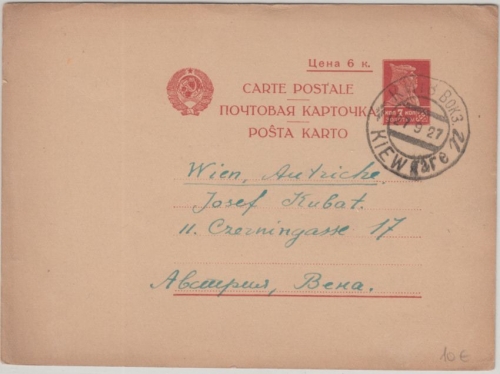 Цена 6 к.
CARTE POSTALE
ПОЧТОВАЯ КАРТОЧКА
POŜTA KARTO
ВОКЗ.
9 27
KIEW gare
Wien, Autriche
Josef Kubat.
11. Czerningasse 17
Австрия, Вена.
10 €